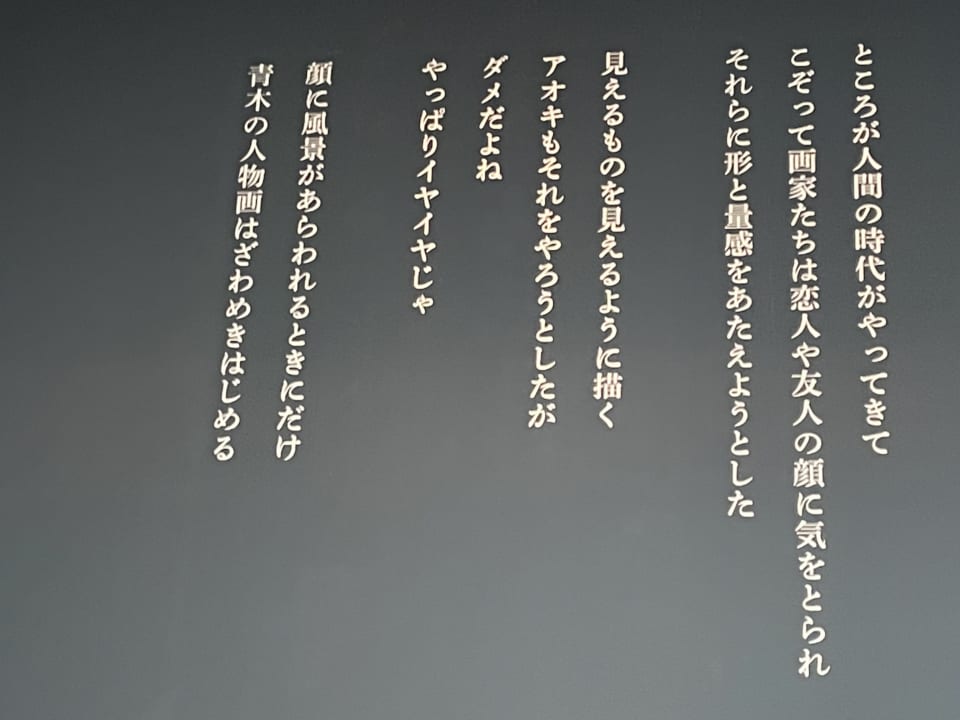 ところが人間の時代がやってきて
こぞって画家たちは恋人や友人の顔に気をとられ
それらに形と量感をあたえようとした
見えるものを見えるように描く
アオキもそれをやろうとしたが
ダメだよね
やっぱりイヤイヤじゃ
顔に風景があらわれるときにだけ
青木の人物画はざわめきはじめる